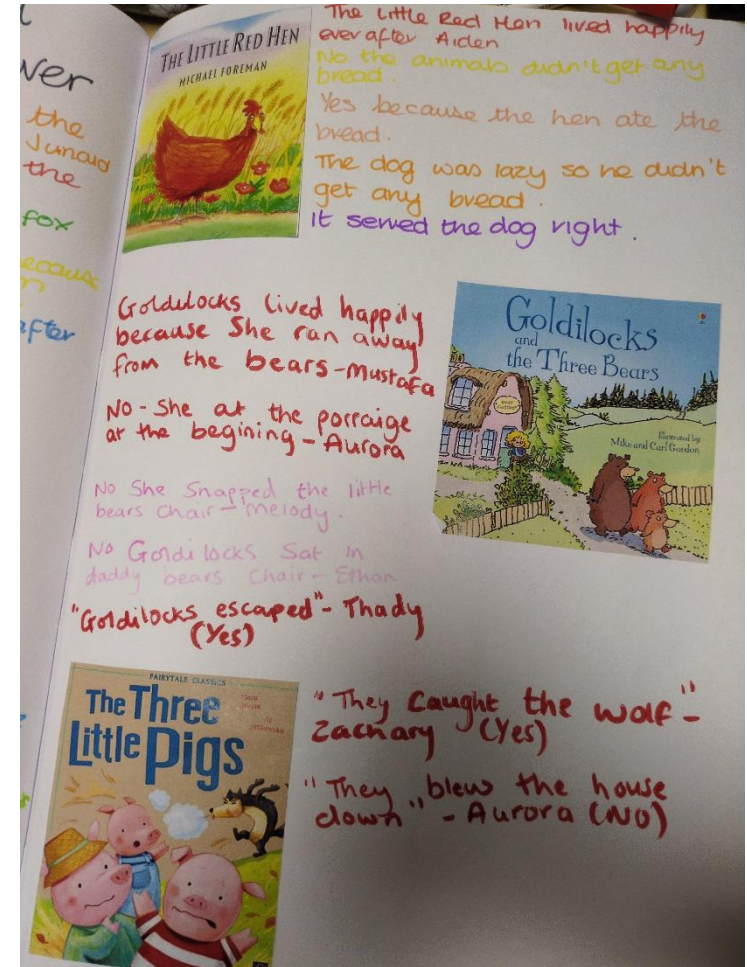 ver
the
Junaid
the
fox
because
after
THE LITTLE RED HEN
MICHAEL FOREMAN
The Little Red Hen lived happily
ever after Aiden
No the animals didn't get any
bread.
Yes because the hen ate the
bread.
The dog was lazy so he didn't
get any bread.
It served the dog right.
Goldilocks lived happily
because She ran away
from the bears-Mustafa
No - She at the porraige
at the begining - Aurora
No She Snapped the little
bears chair - Melody.
No Goldilocks Sat in
daddy bears Chair - Ethan
"Goldilocks escaped" - Thady
(Yes)
Goldilocks
and
the Three Bears
Bear
Cottage
Illustrated by
Mike and Carl Gordon
FAIRYTALE CLASSICS
The Three
Little Pigs
"They Caught the wolf" -
Zachary (Yes)
"They blew the house
down" - Aurora (NO)